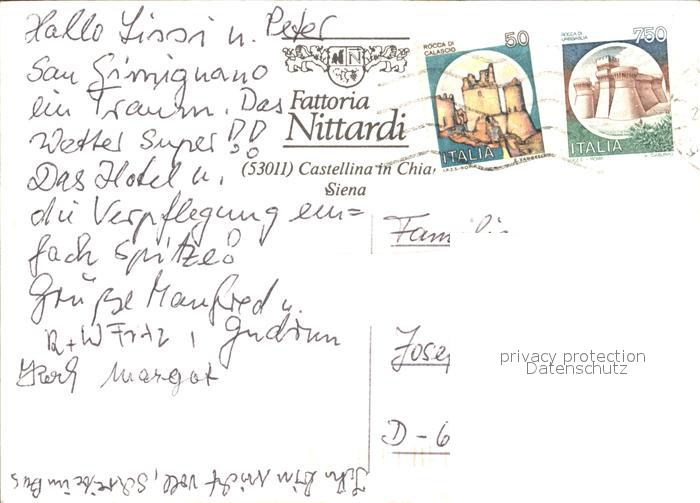 Hallo Sissi u. Peter
San Gimignano
ein Traum. Das
Wetter Super!!
Das Hotel u.
die Verpflegung ein=
fach spitze!
Grüße Manfred u.
R+W Fritz, Gudrun
Karl Margot
Ich bin nicht voll, schreibe im Bus
Fattoria
Nittardi
(53011) Castellina in Chia
Siena
ROCCA DI
CALASCIO
50
ITALIA
ROCCA DI
URBISAGLIA
750
ITALIA
Familie
Jose
D-6
privacy protection
Datenschutz